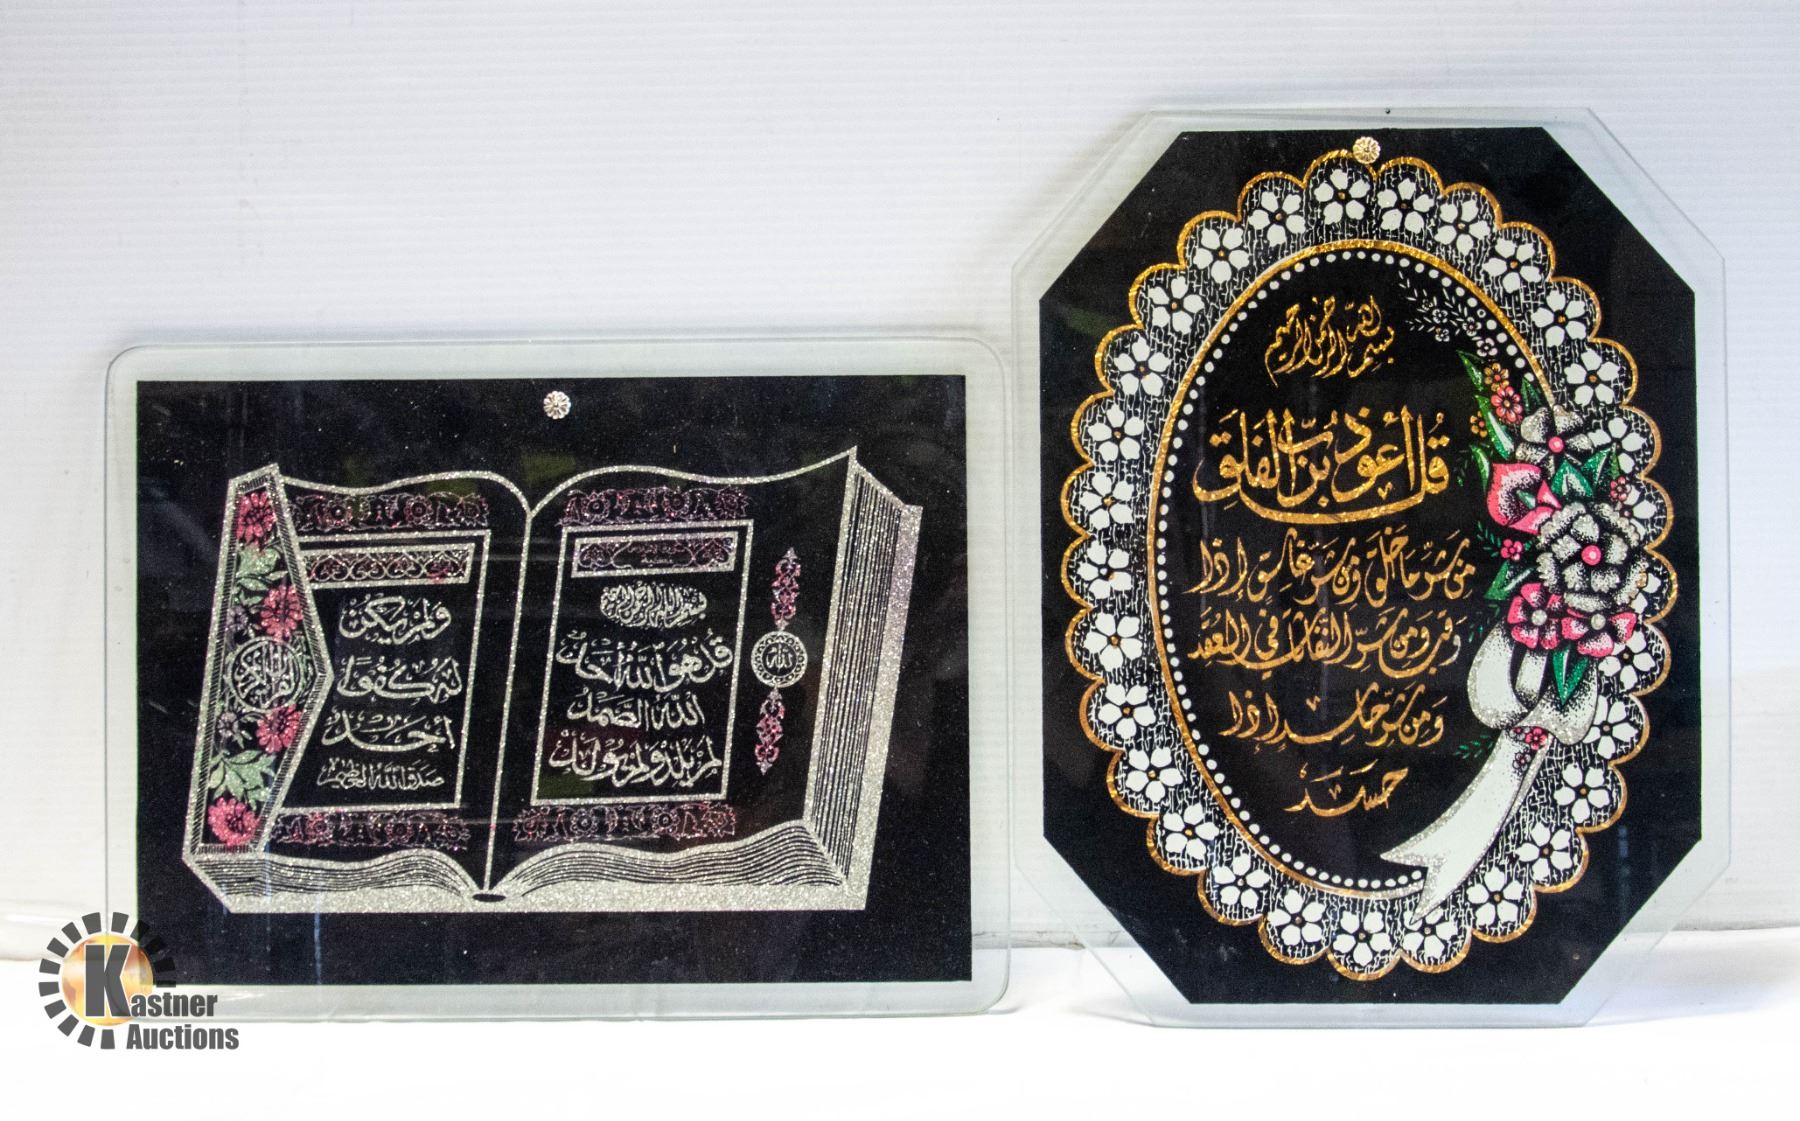 بسم الله الرحمن الرحيم
قل هو الله أحد
الله الصمد
لم يلد ولم يولد
ولم يكن
له كفوا
أحد
صدق الله العظيم
القرآن الكريم
الله
بسم الله الرحمن الرحيم
قُل أعوذ برب الفلق
من شر ما خلق ومن شر غاسق إذا
وقب ومن شر النفاثات في العقد
ومن شر حاسد إذا
حسد
Kastner
Auctions